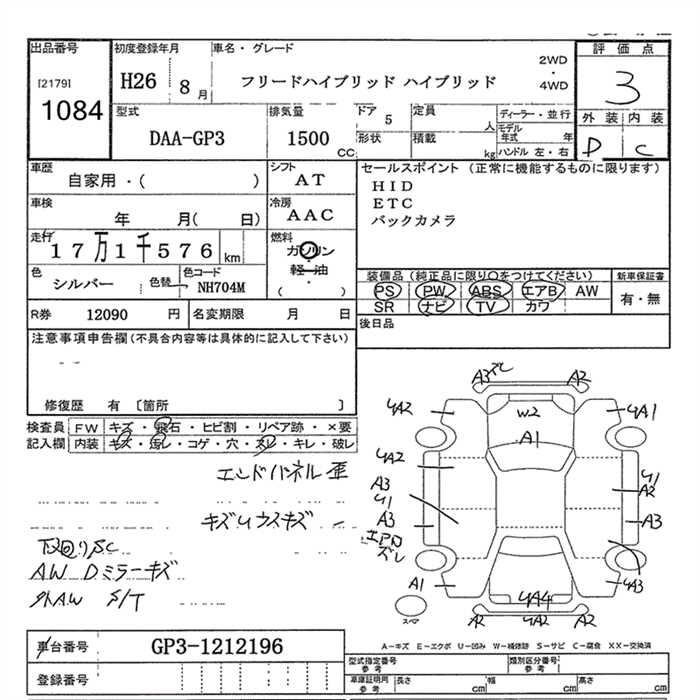 出品番号 初度登録年月 車名・グレード 2WD ・ 4WD 評価点
[2179] 1084 H26 8 月 フリードハイブリッド ハイブリッド 3
型式 DAA-GP3 排気量 1500 CC ドア 5 定員 人 ディーラー・並行 外装 内装
形状 積載 kg モデル年式 年 ハンドル 左・右 D C
車歴 自家用・( ) シフト AT セールスポイント (正常に機能するものに限ります)
HID
ETC
バックカメラ
車検 年 月( 日) 冷房 AAC
走行 17万1千576 km 燃料 ガソリン 軽油 ・ ( )
色 シルバー 色替 色コード NH704M
装備品(純正品に限り○をつけてください) 新車保証書
PS PW ABS エアB AW 有・無
SR ナビ TV カワ
R券 12090 円 名変期限 月 日 後日品
注意事項申告欄(不具合内容等は具体的に記入して下さい)
修復歴 有 〔箇所 〕
検査員 FW キズ・飛石・ヒビ割・リペア跡・×要
記入欄 内装 キズ・汚レ・コゲ・穴・スレ・キレ・破レ
エンドパネル歪
キズU ウスキズ
下廻りSC
AW Dミラーキズ
外AW S/T
A3ズレ A2
UA2 W2 UA1
A1
UA2 U1
A3 A2
U1
A3 A3
エアロズレ
A1 UA3
UA4
スペア A2 UA2 A2
A-キズ E-エクボ U-凹み W-補修跡 S-サビ C-腐食 XX-交換済
車台番号 GP3-1212196
登録番号
型式指定番号 参考 類別区分番号 参考
車庫証明用 参考 長さ cm 幅 cm 高さ cm